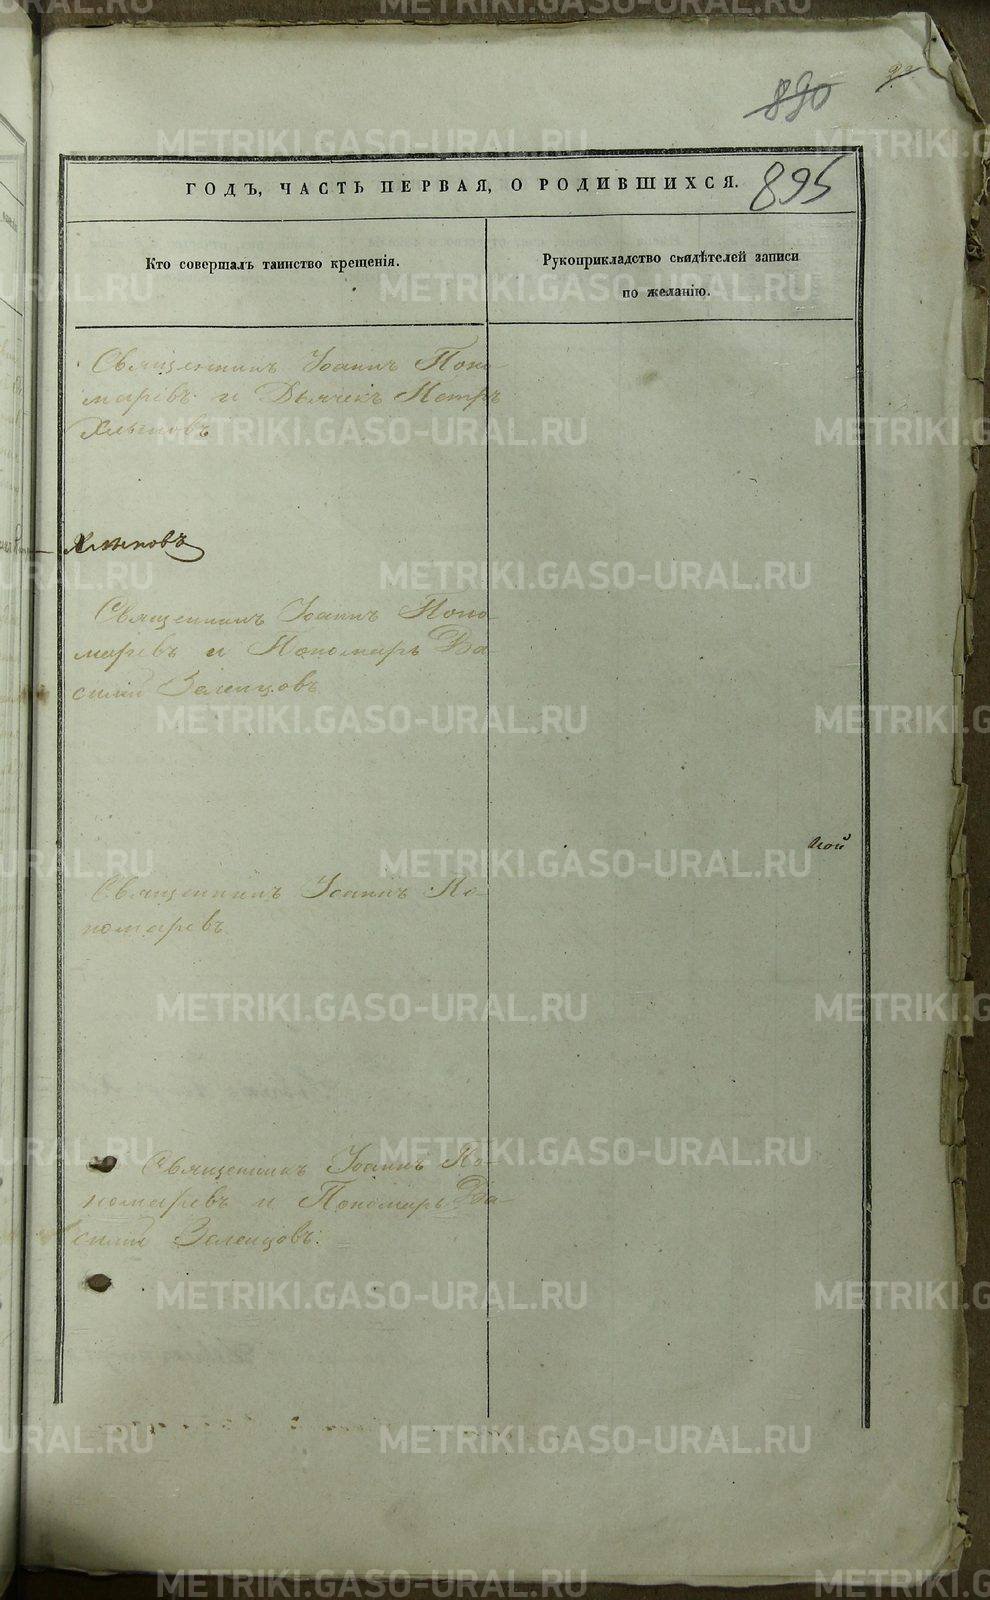 890
895
ГОДЪ, ЧАСТЬ ПЕРВАЯ, О РОДИВШИХСЯ.
Кто совершалъ таинство крещенія.
Рукоприкладство свидѣтелей записи
по желанію.
Священникъ Іоаннъ Поно-
маревъ и Дьячекъ Петръ
Хлыновъ
Хлыновъ
Священникъ Іоаннъ Поно-
маревъ и Пономарь Ва-
силій Зеленцовъ
Священникъ Іоаннъ По-
номаревъ
Священникъ Іоаннъ По-
номаревъ и Пономарь Ва-
силій Зеленцовъ.
METRIKI.GASO-URAL.RU